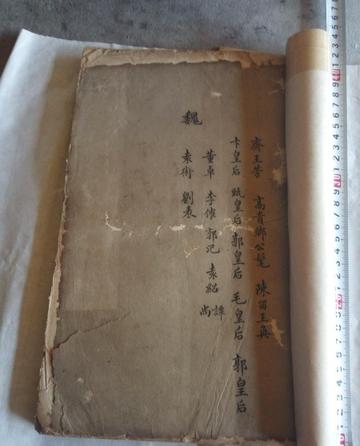 魏
齊王芳 高貴鄉公髦 陳留王奐
卞皇后 甄皇后 郭皇后 毛皇后 郭皇后
董卓 李傕 郭汜 袁紹 譚 尚
袁術 劉表